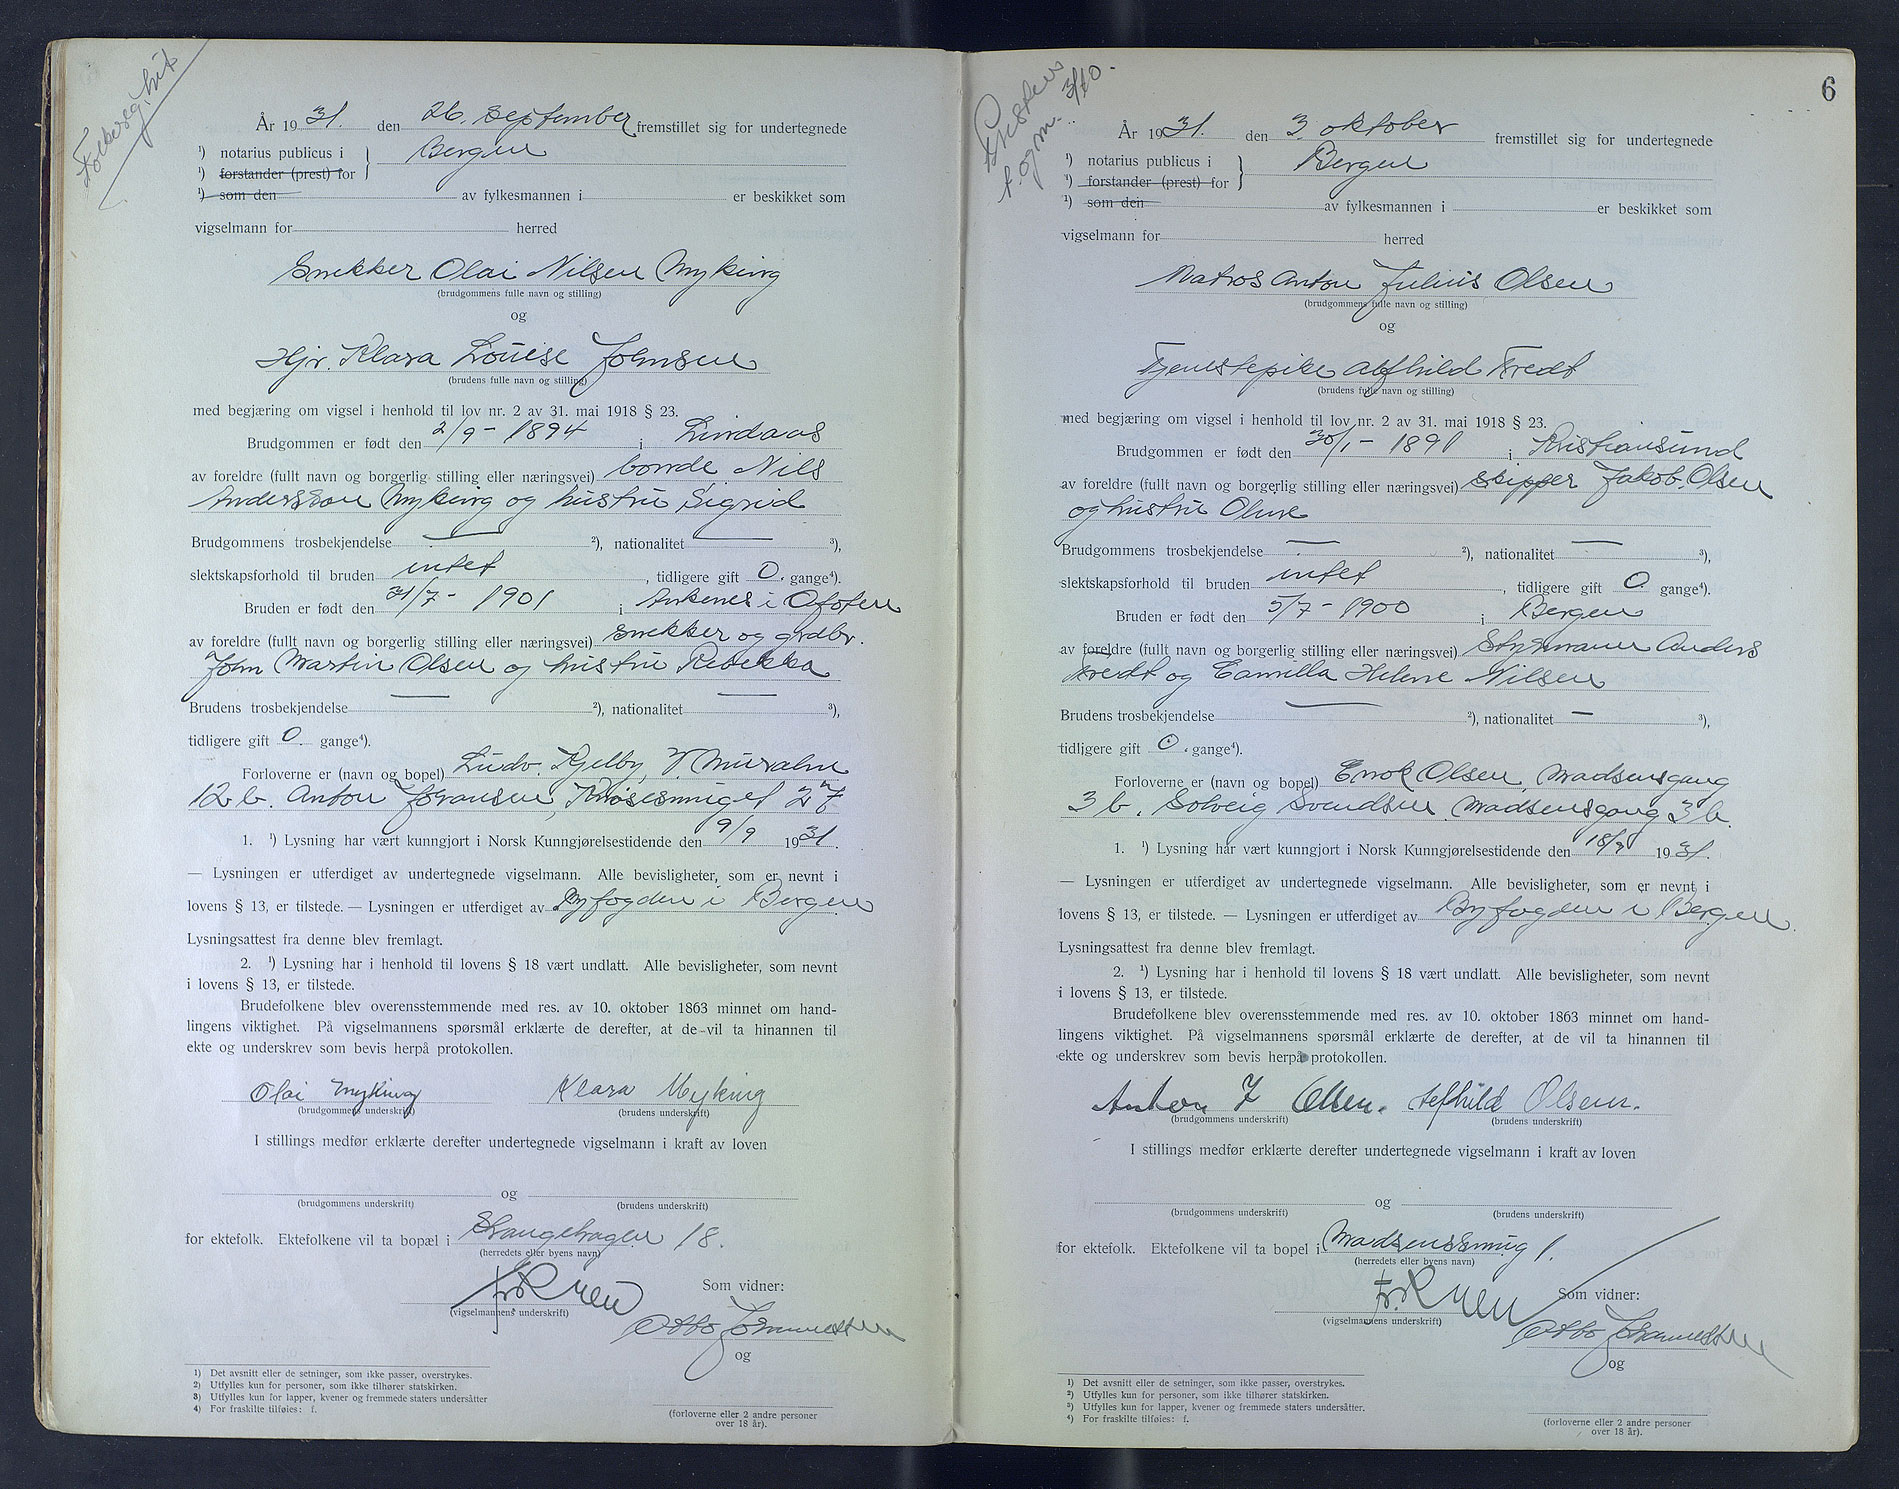 Folkereg. hit
År 1931. den 26. september fremstillet sig for undertegnede
¹) notarius publicus i } Bergen
¹) forstander (prest) for
¹) som den av fylkesmannen i er beskikket som
vigselmann for herred
Snekker Olai Nilsen Myking
(brudgommens fulle navn og stilling)
og
Hjv. Klara Louise Johnsen
(brudens fulle navn og stilling)
med begjæring om vigsel i henhold til lov nr. 2 av 31. mai 1918 § 23.
Brudgommen er født den 2/9 - 1894 i Lindaas
av foreldre (fullt navn og borgerlig stilling eller næringsvei) bonde Nils
Andersson Myking og hustru Sigrid
Brudgommens trosbekjendelse — ²), nationalitet — ³),
slektskapsforhold til bruden intet, tidligere gift 0. gange⁴).
Bruden er født den 31/7 - 1901 i Ankenes i Ofoten
av foreldre (fullt navn og borgerlig stilling eller næringsvei) snekker og grdbr.
John Martin Olsen og hustru Rebekka
Brudens trosbekjendelse — ²), nationalitet — ³),
tidligere gift 0. gange⁴).
Forloverne er (navn og bopel) Ludv. Kjelby, V. Muralm
12 b. Anton Johansen, Krøsesmuget 27
1. ¹) Lysning har vært kunngjort i Norsk Kunngjørelsestidende den 9/9 1931.
— Lysningen er utferdiget av undertegnede vigselmann. Alle bevisligheter, som er nevnt i
lovens § 13, er tilstede. — Lysningen er utferdiget av Byfogden i Bergen
Lysningsattest fra denne blev fremlagt.
2. ¹) Lysning har i henhold til lovens § 18 vært undlatt. Alle bevisligheter, som nevnt
i lovens § 13, er tilstede.
Brudefolkene blev overensstemmende med res. av 10. oktober 1863 minnet om hand-
lingens viktighet. På vigselmannens spørsmål erklærte de derefter, at de vil ta hinannen til
ekte og underskrev som bevis herpå protokollen.
Olai Myking Klara Myking
(brudgommens underskrift) (brudens underskrift)
I stillings medfør erklærte derefter undertegnede vigselmann i kraft av loven
og
(brudgommens underskrift) (brudens underskrift)
for ektefolk. Ektefolkene vil ta bopæl i Strangehagen 18.
(herredets eller byens navn)
Som vidner:
(vigselmannens underskrift)
Otto Johannessen
og
1) Det avsnitt eller de setninger, som ikke passer, overstrykes.
2) Utfylles kun for personer, som ikke tilhører statskirken.
3) Utfylles kun for lapper, kvener og fremmede staters undersåtter
4) For fraskilte tilføies: f.
(forloverne eller 2 andre personer
over 18 år).
6
3/10.
f. og m.
År 1931. den 3. oktober fremstillet sig for undertegnede
¹) notarius publicus i } Bergen
¹) forstander (prest) for
¹) som den av fylkesmannen i er beskikket som
vigselmann for herred
Matros Anton Julius Olsen
(brudgommens fulle navn og stilling)
og
Tjenestepike Alfhild Tredt
(brudens fulle navn og stilling)
med begjæring om vigsel i henhold til lov nr. 2 av 31. mai 1918 § 23.
Brudgommen er født den 30/1 - 1891 i Kristiansund
av foreldre (fullt navn og borgerlig stilling eller næringsvei) skipper Jakob Olsen
og hustru Oline
Brudgommens trosbekjendelse — ²), nationalitet — ³),
slektskapsforhold til bruden intet, tidligere gift 0 gange⁴).
Bruden er født den 5/7 - 1900 i Bergen
av foreldre (fullt navn og borgerlig stilling eller næringsvei) Styrmann Anders
Tredt og Camilla Helene Nilsen
Brudens trosbekjendelse — ²), nationalitet — ³),
tidligere gift 0. gange⁴).
Forloverne er (navn og bopel) Enok Olsen, Madsensgang
3 b. Solveig Svendsen, Madsensgang 3 b.
1. ¹) Lysning har vært kunngjort i Norsk Kunngjørelsestidende den 18/9 1931.
— Lysningen er utferdiget av undertegnede vigselmann. Alle bevisligheter, som er nevnt i
lovens § 13, er tilstede. — Lysningen er utferdiget av Byfogden i Bergen.
Lysningsattest fra denne blev fremlagt.
2. ¹) Lysning har i henhold til lovens § 18 vært undlatt. Alle bevisligheter, som nevnt
i lovens § 13, er tilstede.
Brudefolkene blev overensstemmende med res. av 10. oktober 1863 minnet om hand-
lingens viktighet. På vigselmannens spørsmål erklærte de derefter, at de vil ta hinannen til
ekte og underskrev som bevis herpå protokollen.
Anton J Olsen. Alfhild Olsen.
(brudgommens underskrift) (brudens underskrift)
I stillings medfør erklærte derefter undertegnede vigselmann i kraft av loven
og
(brudgommens underskrift) (brudens underskrift)
for ektefolk. Ektefolkene vil ta bopel i Madsenssmug 1.
(herredets eller byens navn)
Som vidner:
(vigselmannens underskrift)
Otto Johannessen
og
1) Det avsnitt eller de setninger, som ikke passer, overstrykes.
2) Utfylles kun for personer, som ikke tilhører statskirken.
3) Utfylles kun for lapper, kvener og fremmede staters undersåtter.
4) For fraskilte tilføies: f.
(forloverne eller 2 andre personer
over 18 år).